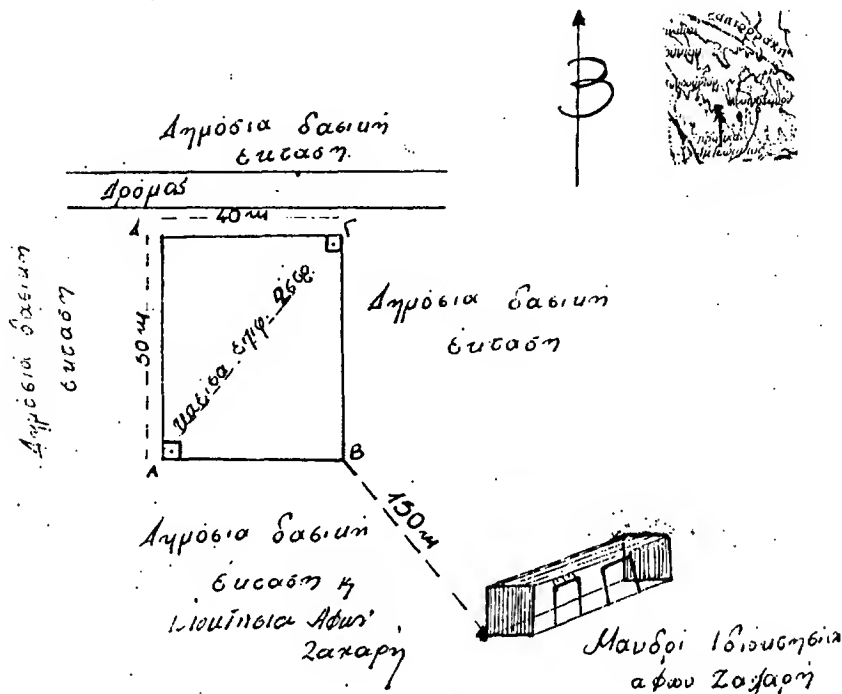 Δημόσια δασική
έκταση.
Β
Δρόμος
40 m
Δ
Γ
Δημόσια δασική
έκταση
50 m
Δημόσια δασική
έκταση
Α
Β
150 m
Δημόσια δασική
έκταση η
Ιδιοκτησία Αφων
Ζαχαρή
Μανδρί Ιδιοκτησία
αφων Ζαχαρή